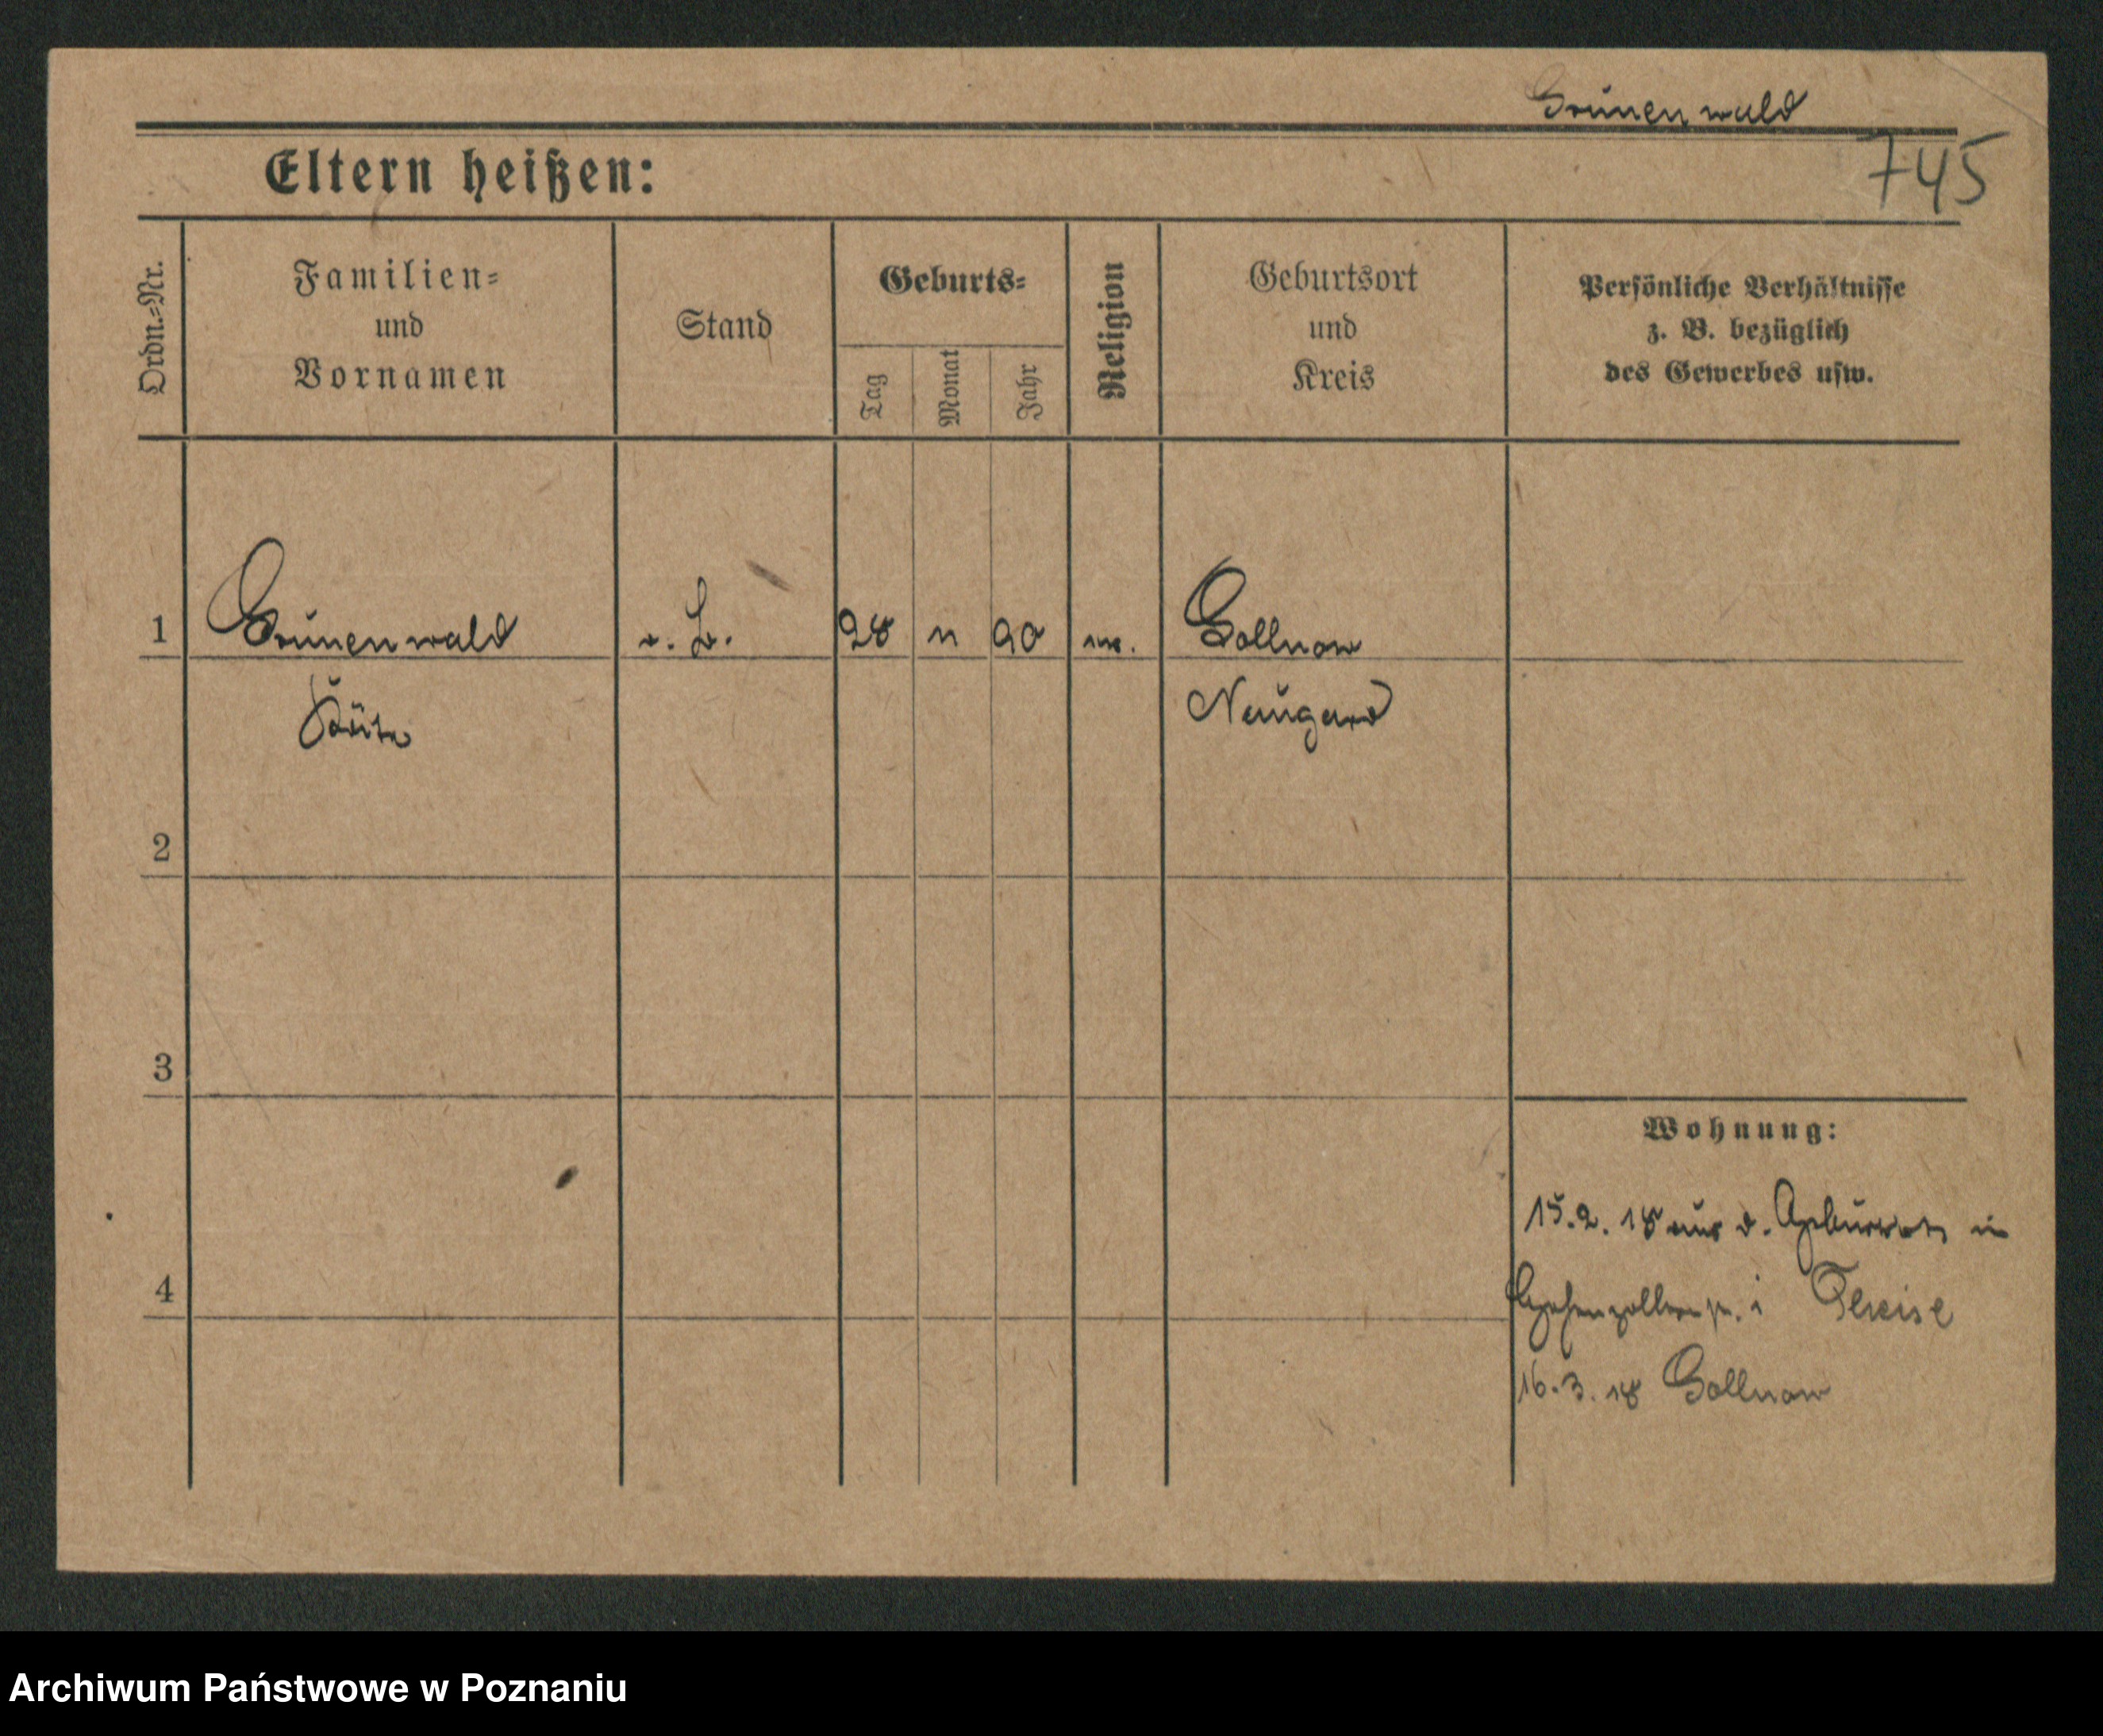 Grünenwald
745
Eltern heißen:
Ordn.-Nr.
Familien-
und
Vornamen
Stand
Geburts-
Tag
Monat
Jahr
Religion
Geburtsort
und
Kreis
Persönliche Verhältnisse
z. B. bezüglich
des Gewerbes usw.
1 Grünenwald 28 11 90 Gollnow
Käte Naugard
2
3
4
Wohnung:
15.2.18 aus d. in
Hohenzollernstr.
16.3.18 Gollnow
Archiwum Państwowe w Poznaniu